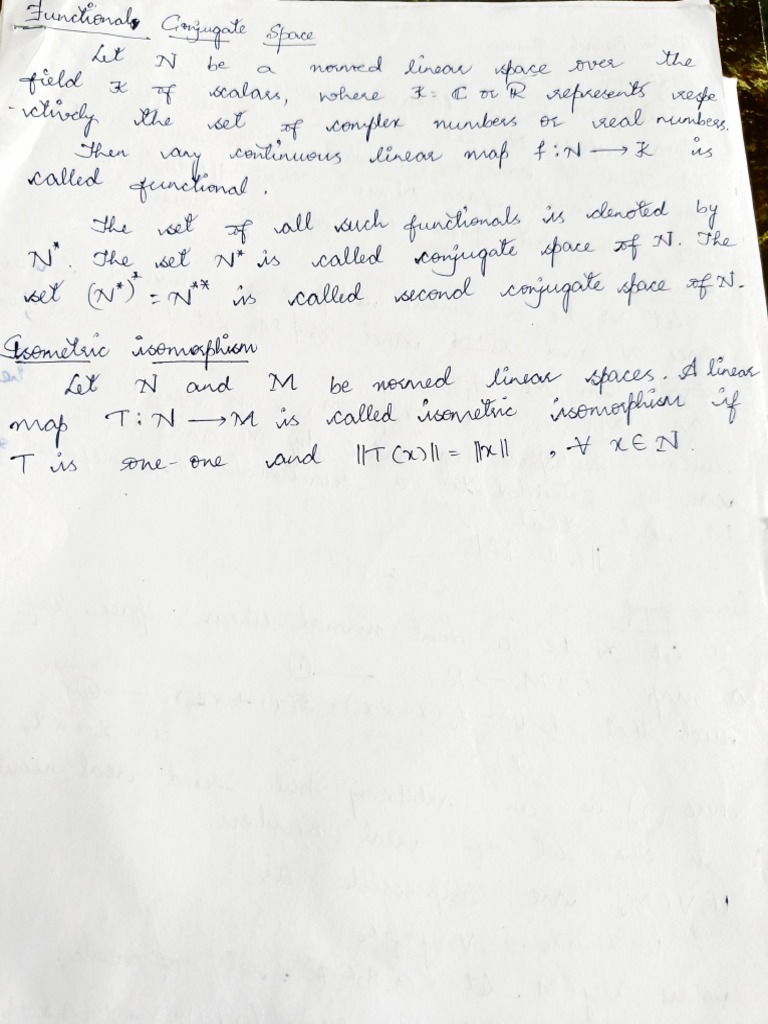 Functionals Conjugate Space
Let N be a normed linear space over the
field K of scalars, where K = C or R represents respe
-ctively the set of complex numbers or real numbers.
Then any continuous linear map f : N → K is
called functional.
The set of all such functionals is denoted by
N*. The set N* is called conjugate space of N. The
set (N*)* = N** is called second conjugate space of N.
Isometric isomorphism
Let N and M be normed linear spaces. A linear
map T : N → M is called isometric isomorphism if
T is one-one and ||T(x)|| = ||x|| , ∀ x ∈ N.